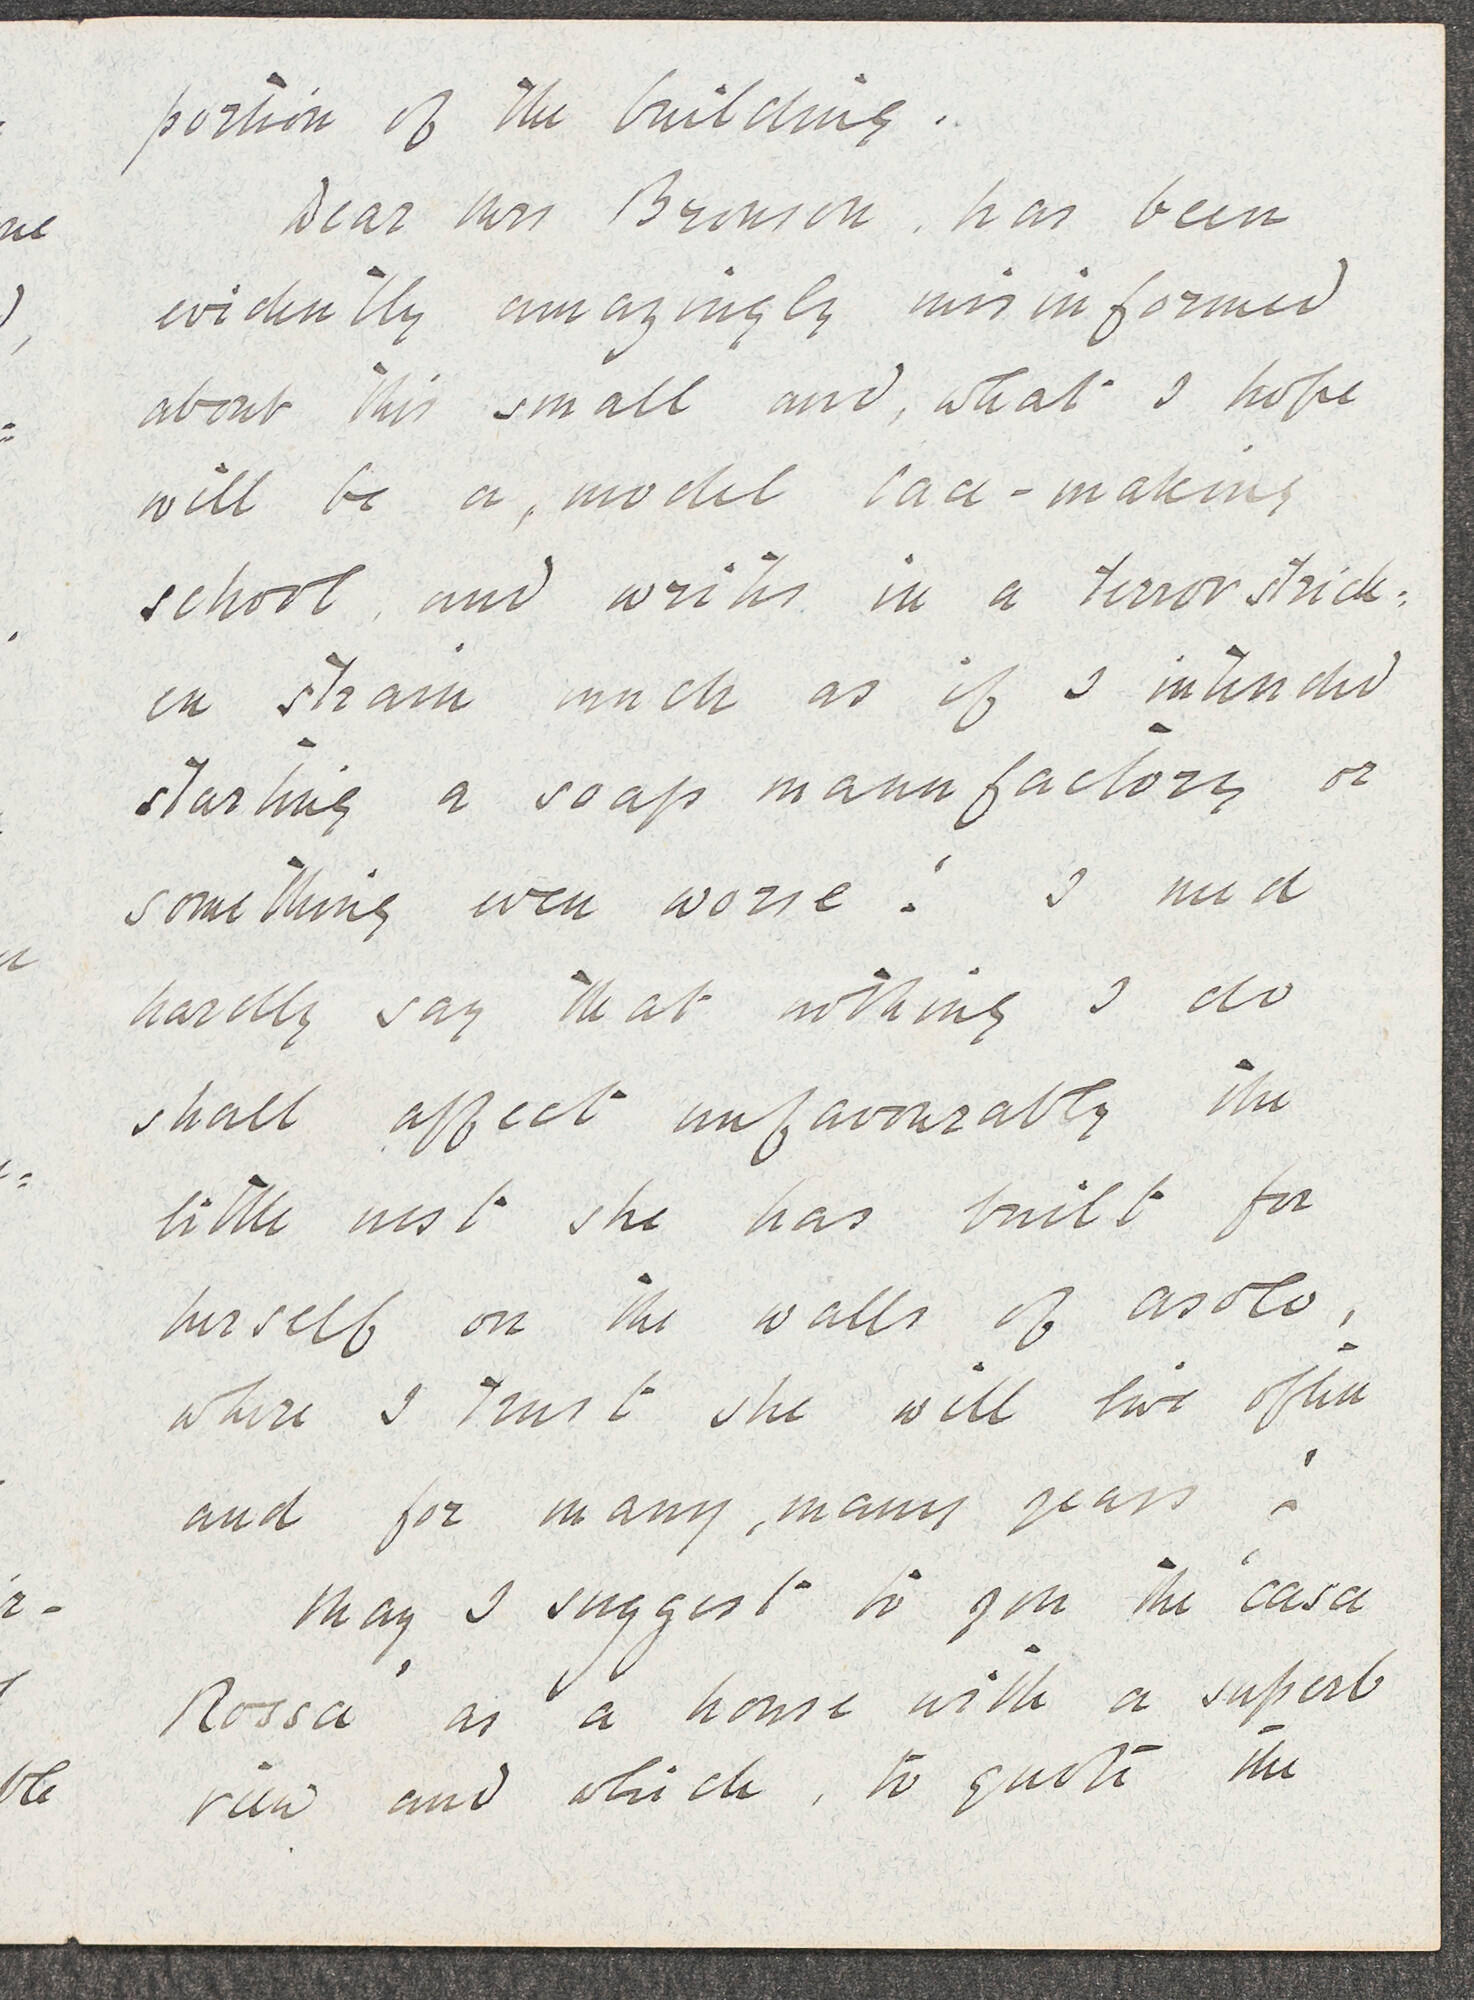 portion of the building.
Dear Mrs Bronson, has been
evidently amazingly misinformed
about this small and, what I hope
will be a, model lace-making
school, and writes in a terror strick=
en strain much as if I intended
starting a soap manufactory or
something even worse! I need
hardly say that nothing I do
shall affect unfavourably the
little nest she has built for
herself on the walls of Asolo,
where I trust she will live often
and for many, many years!
May I suggest to you the 'Casa
Rossa' as a house with a superb
view and which, to quote the